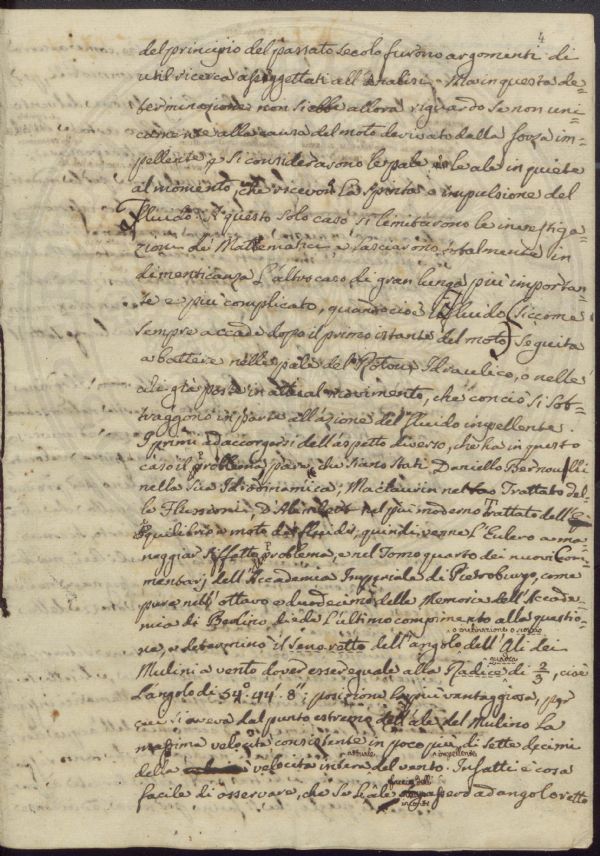 4
del principio del passato secolo furono argomenti di
util ricerca assoggettati all'Analisi. Ma in questa de=
terminazione non si ebbe allora riguardo se non uni=
camente alla causa del moto derivato dalla forza im=
pellente, e si considerarono le pale o le ale in quiete
al momento, che ricevon la spinta o impulsione del
Fluido. A questo solo caso si limitarono le investiga=
zioni de' Matematici, e lasciarono totalmente in
dimenticanza l'altro caso di gran lunga più importan=
te e più complicato, quando cioè il Fluido (siccome
sempre accade dopo il primo istante del moto) seguita
a battere nelle pale del Rotone Idraulico, o nelle
ale già poste in attual movimento, che con ciò si sot=
traggono in parte all'azione del fluido impellente.
I primi ad accorgersi dell'aspetto diverso, che ha in questo
caso il problema, pare che siano stati Daniello Bernoulli
nella sua Idrodinamica; Maclaurin nel Trattato del=
le Flussioni D'Alembert nel più moderno Trattato dell'E=
quilibrio e moto de' fluidi; quindi venne l'Eulero a ma=
neggiar siffatto problema, e nel Tomo quarto dei nuovi Com=
mentarj dell'Accademia Imperiale di Pietroburgo, come
pure nell'ottavo e duodecimo delle Memorie dell'Accade=
mia di Berlino diede l'ultimo compimento alla questio=
ne, e determinò il Seno retto dell'angolo dell'Ali dei
Mulini a vento dover esser eguale alla Radice di 2/3, cioè
quadra
l'angolo di 54°. 44'. 8"; posizione la più vantaggiosa, per
cui si aveva dal punto estremo dell'ale del Mulino la
massima velocità consistente in poco più di sette decimi
della velocità intera del vento. Infatti è cosa
attuale
impellente
facile di osservare, che se le ale fossero ad angolo retto